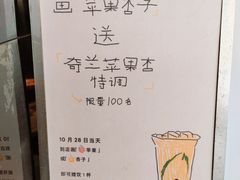 画苹果杏子
送
奇兰苹果杏
特调
限量100名
10月26日当天
到店画「🍎苹果」
或「🍑杏子」
即可赠饮1杯